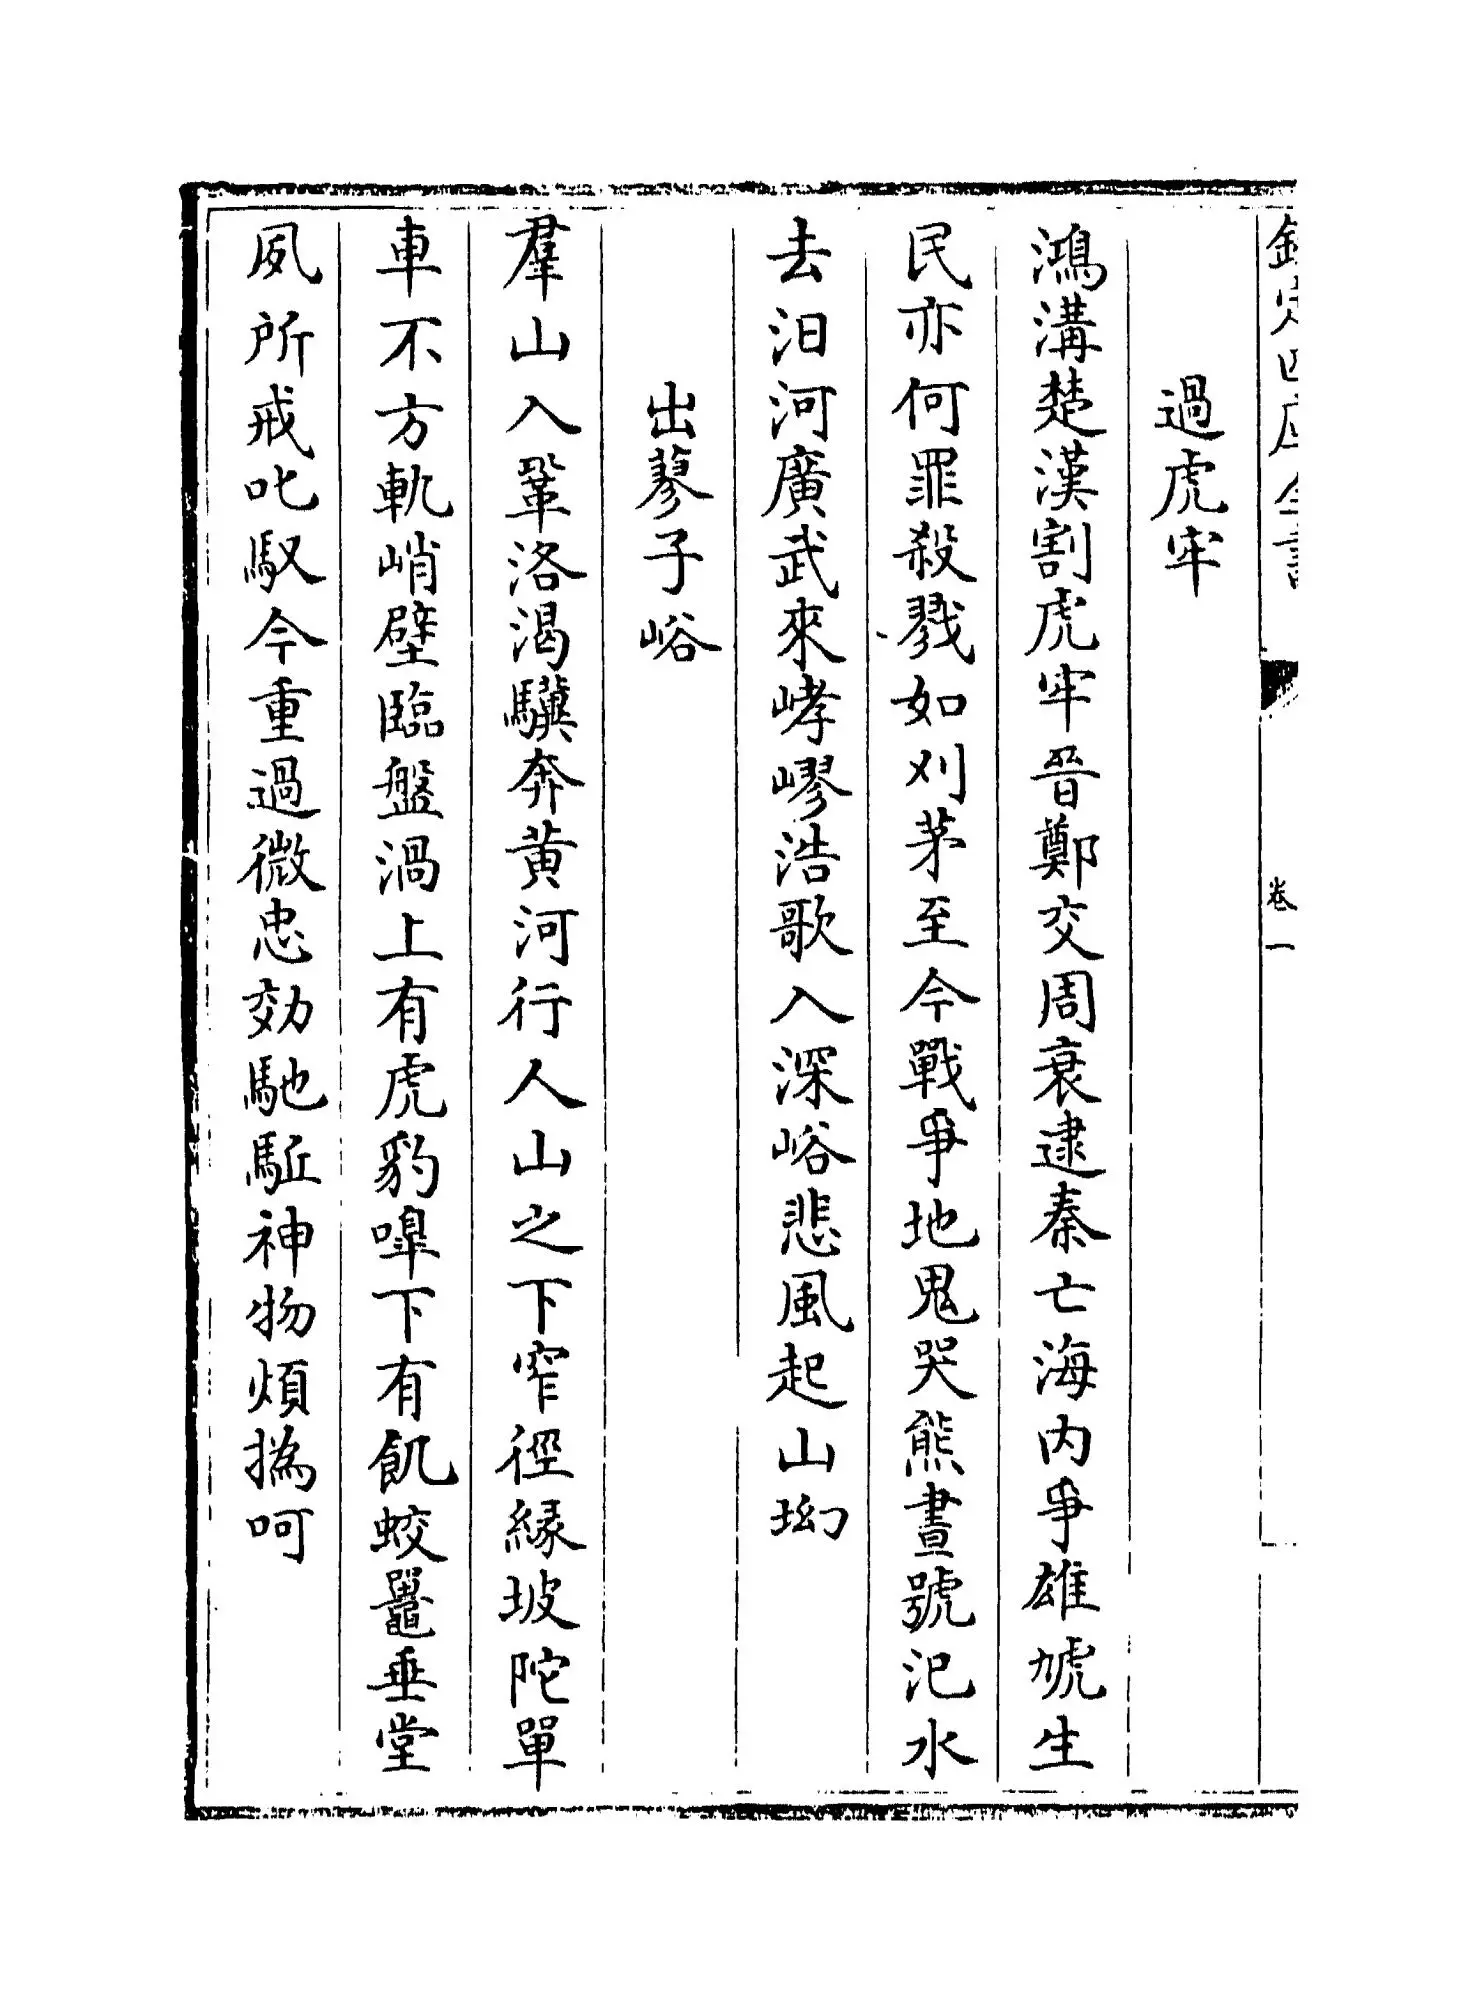 欽定四庫全書
卷一
過虎牢
鴻溝楚漢割虎牢晉鄭交周衰逮秦亡海内爭雄虓生
民亦何罪殺戮如刈茅至今戰爭地鬼哭熊晝號汜水
去汨河廣武來峔嵺浩歌入深峪悲風起山坳
出蓼子峪
羣山入鞏洛渴驥奔黄河行人山之下窄徑縁坡陀單
車不方軌峭壁臨盤渦上有虎豹嘷下有飢蛟鼉垂堂
夙所戒叱馭今重過微忠効馳駈神物煩撝呵